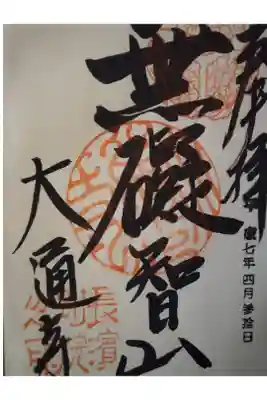 奉拝
七年四月参拾日
無礙智山
大通寺
長濱